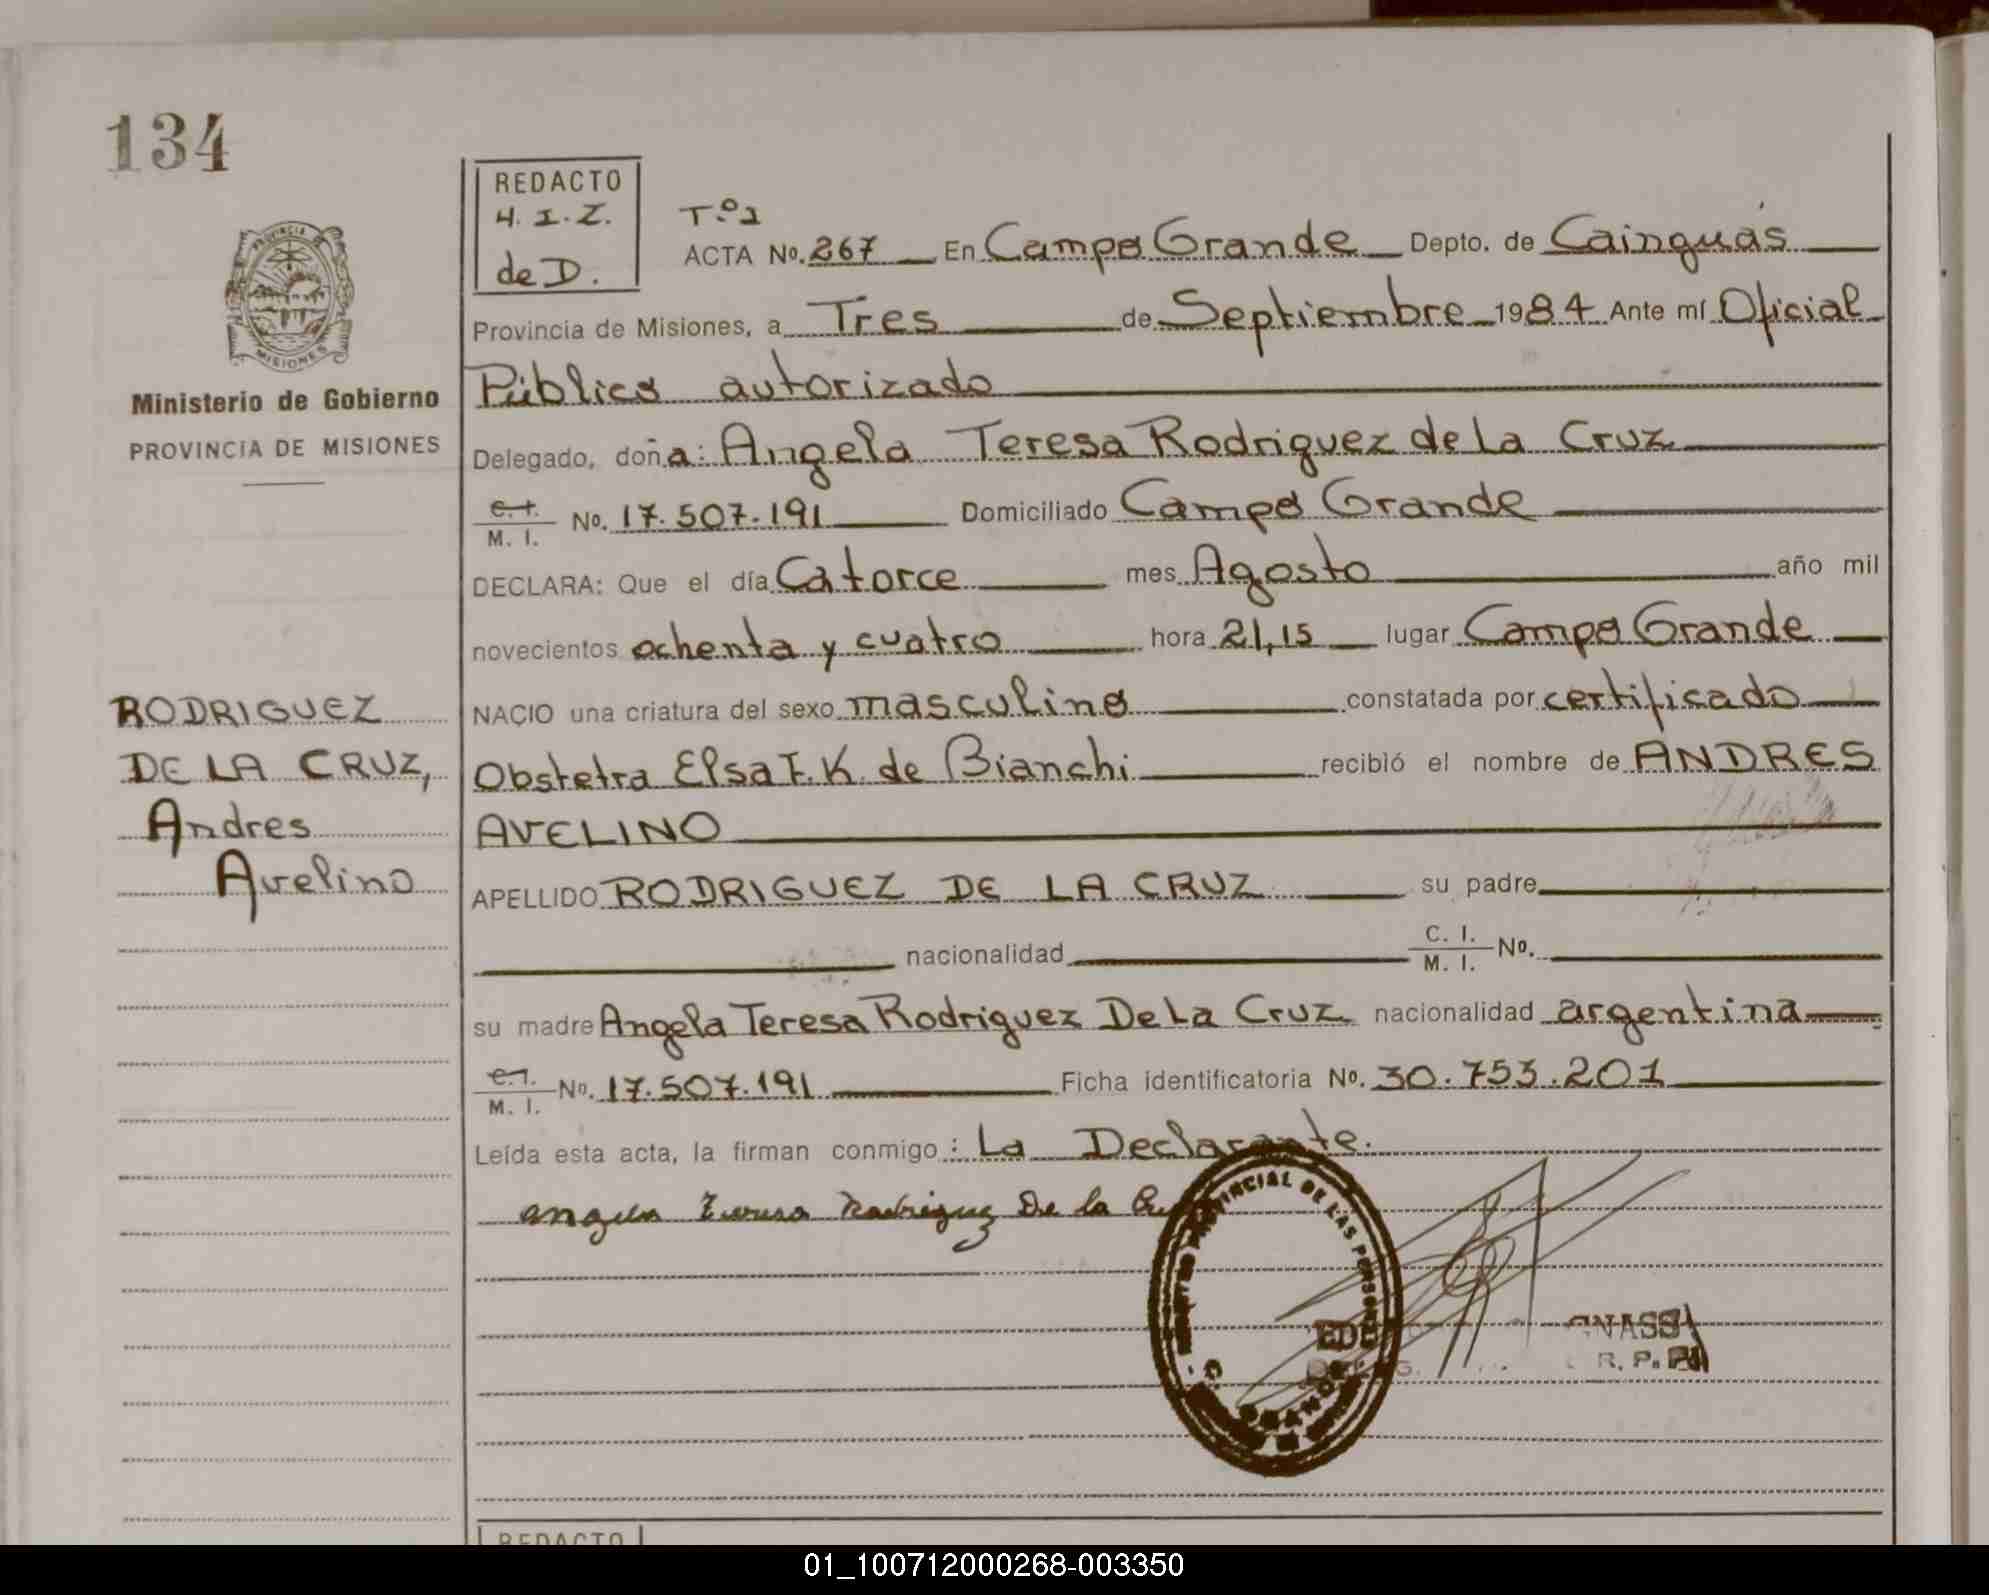 134
REDACTO
H. I. Z.
de D.
T.º 1
ACTA No. 267 En Campo Grande Depto. de Cainguás
Provincia de Misiones, a Tres de Septiembre 1984 Ante mí Oficial
Público autorizado
Delegado, doña: Angela Teresa Rodriguez de La Cruz
C. I. / M. I. No. 17.507.191 Domiciliado Campo Grande
DECLARA: Que el día Catorce mes Agosto año mil
novecientos ochenta y cuatro hora 21,15 lugar Campo Grande
NACIO una criatura del sexo masculino constatada por certificado
Obstetra Elsa F. K. de Bianchi recibió el nombre de ANDRES
AVELINO
APELLIDO RODRIGUEZ DE LA CRUZ su padre
nacionalidad C. I. / M. I. No.
su madre Angela Teresa Rodriguez De La Cruz nacionalidad argentina
C. I. / M. I. No. 17.507.191 Ficha identificatoria No. 30.753.201
Leída esta acta, la firman conmigo: La Declarante.
Angela Teresa Rodriguez De la Cru
PROVINCIA DE
MISIONES
Ministerio de Gobierno
PROVINCIA DE MISIONES
RODRIGUEZ
DE LA CRUZ,
Andres
Avelino
PROVINCIAL DE LAS PERSONAS
GRANDE
R. P. P.
REDACTO
01_100712000268-003350